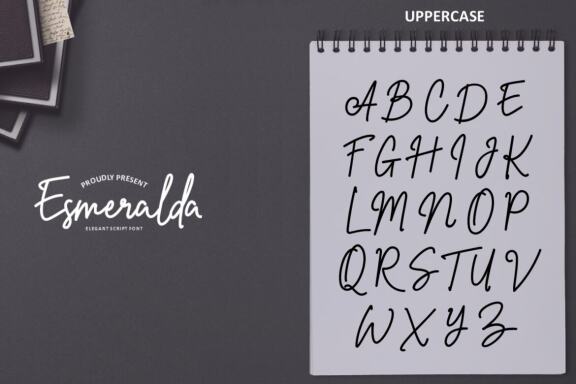 UPPERCASE
PROUDLY PRESENT
Esmeralda
ELEGANT SCRIPT FONT
A B C D E
F G H I J K
L M N O P
Q R S T U V
W X Y Z